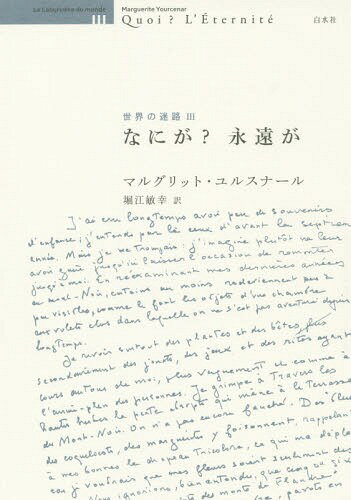 Le Labyrinthe du monde
III
Marguerite Yourcenar
Quoi? L'Éternité
白水社
世界の迷路 III
なにが? 永遠が
マルグリット・ユルスナール
堀江敏幸 訳
J'ai cru longtemps avoir peu de souvenirs
d'enfance; j'entends par là ceux d'avant la septième
année. Mais je me trompais: j'imagine plutôt ne leur
avoir guère jusqu'ici laissé l'occasion de remonter
jusqu'à moi. En réexaminant mes dernières années
au Mont-Noir, certains au moins redeviennent peu à
peu visibles, comme le font les objets d'une chambre
aux volets clos dans laquelle on ne s'est pas aventuré depuis
longtemps.
Je revois surtout des plantes et des bêtes, plus
secondairement des jouets, des jeux et des rites ayant
cours autour de moi, plus vaguement et comme à
l'arrière-plan des personnes. Je grimpe à travers les
hautes herbes la pente abrupte qui mène à la terrasse
du Mont-Noir. On n'a pas encore fauché. Des bleuets,
des coquelicots, des marguerites y foisonnent, rappelant
à mes bonnes le drapeau tricolore, ce qui me déplaît
car je voudrais que mes fleurs soient seulement des